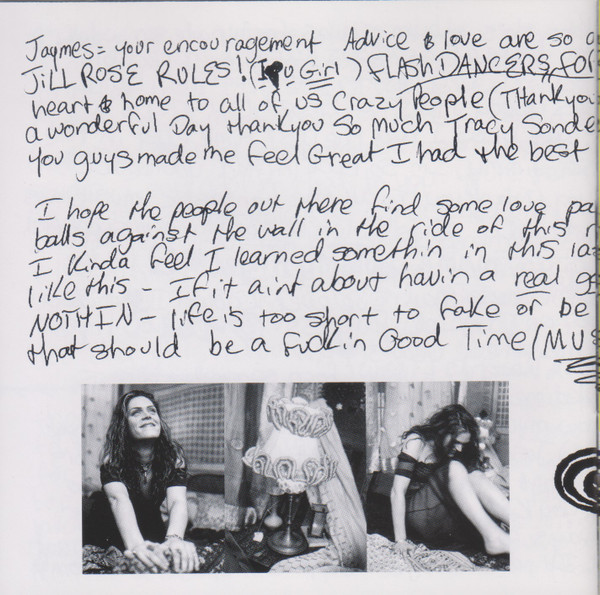 Jaymes = your encouragement Advice & love are so
JILL ROSE RULES! (I ♥ U Girl) FLASHDANCERS, FOR
heart & home to all of us Crazy People (THankyou
a wonderful Day thankyou So much Tracy Sonde
You guys made me feel Great I had the best
I hope the people out there find some love pa
balls against the wall in the ride of this
I Kinda feel I learned somethin in this la
like this - If it aint about havin a real go
NOTHIN - life is too short to fake or be
that should be a fuckin Good Time (MUS